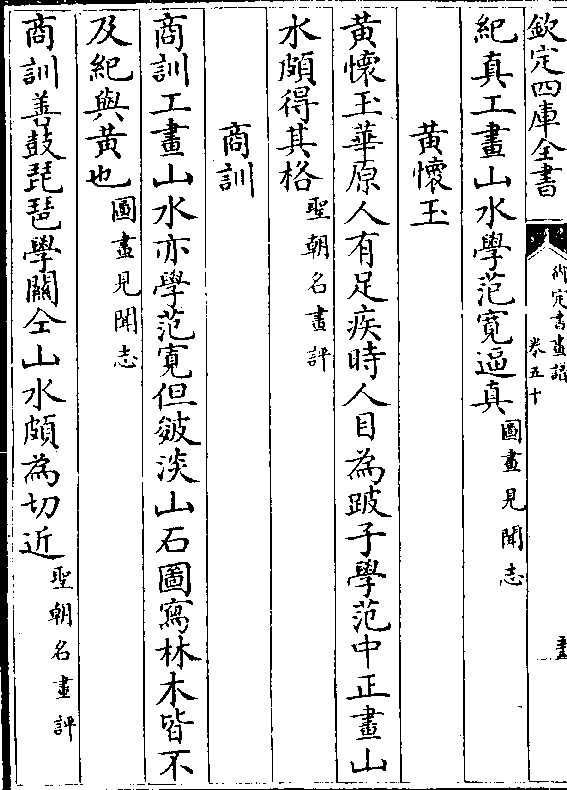 欽定四庫全書
御定書畫譜 卷五十
紀真工畫山水學范寛逼真圖畫見聞志
黃懷玉
黃懷玉華原人有足疾時人目為跛子學范中正畫山
水頗得其格聖朝名畫評
商訓
商訓工畫山水亦學范寛但皴淡山石圖寫林木皆不
及紀與黃也圖畫見聞志
商訓善鼓琵琶學關仝山水頗為切近聖朝名畫評